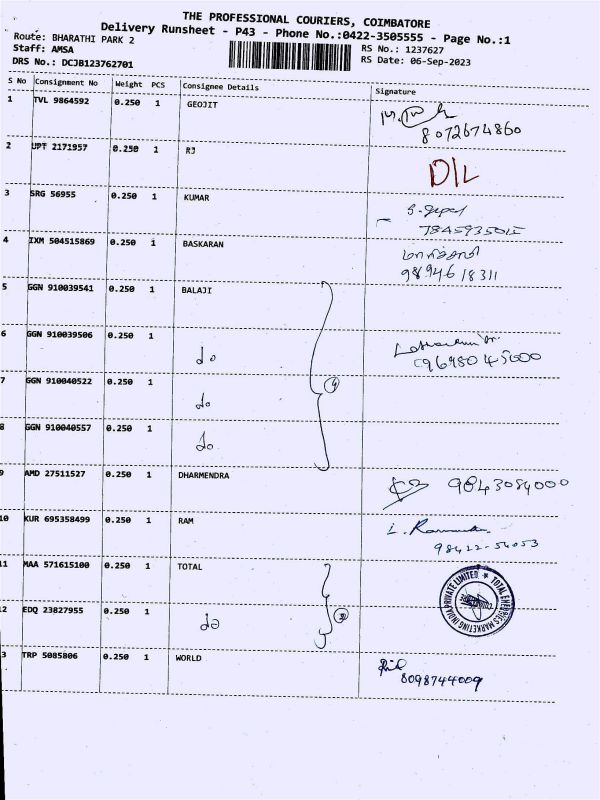 THE PROFESSIONAL COURIERS, COIMBATORE
Delivery Runsheet - P43 - Phone No.:0422-3505555 - Page No.:1
Route: BHARATHI PARK 2
Staff: AMSA
DRS No.: DCJB123762701
RS No.: 1237627
RS Date: 06-Sep-2023
S No Consignment No Weight PCS Consignee Details Signature
1 TVL 9864592 0.250 1 GEOJIT
8072674860
2 UPT 2171957 0.250 1 RJ D/L
3 SRG 56955 0.250 1 KUMAR
4 IXM 504515869 0.250 1 BASKARAN
9894618311
5 GGN 910039541 0.250 1 BALAJI
6 GGN 910039506 0.250 1 do
9698045000
7 GGN 910040522 0.250 1 do (4)
8 GGN 910040557 0.250 1 do
9 AMD 27511527 0.250 1 DHARMENDRA 9843084000
10 KUR 695358499 0.250 1 RAM
98422-54053
11 MAA 571615100 0.250 1 TOTAL
2 EDQ 23827955 0.250 1 do (2)
TOTAL ENERGIES MARKETING INDIA PRIVATE LIMITED
3 TRP 5085806 0.250 1 WORLD
8098744009